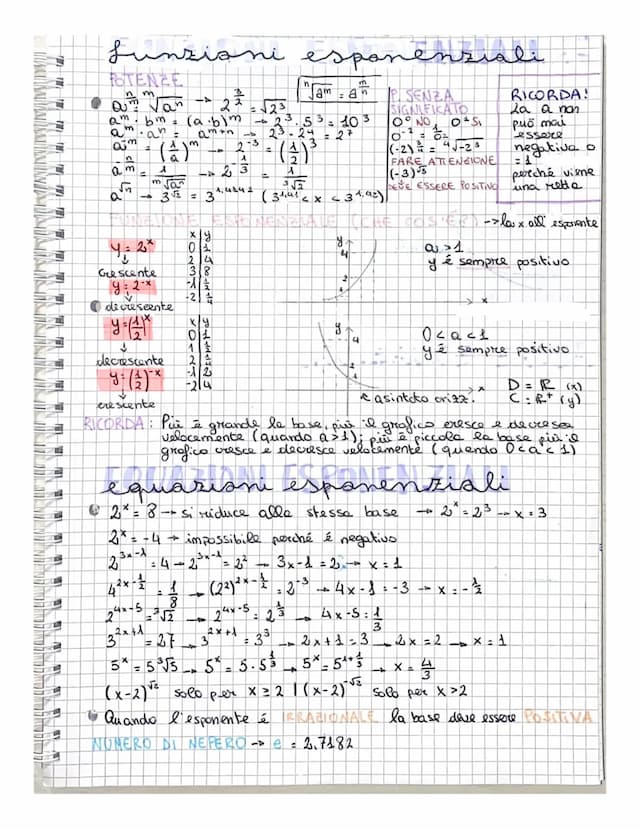 funzioni esponenziali
POTENZE
a^(n/m) = ᵐ√aⁿ → 2^(3/2) = √2³
ⁿ√aᵐ = a^(m/n)
aᵐ · bᵐ = (a·b)ᵐ → 2³ · 5³ = 10³
aᵐ · aⁿ = aᵐ⁺ⁿ → 2³ · 2⁴ = 2⁷
a⁻ᵐ = (1/a)ᵐ → 2⁻³ = (1/2)³
→ 2^(-1/3) = 1/³√2
a^√n → 3^√2 = 3^1,4142 (3^1,41 < x < 3^1,42)
P. SENZA
SIGNIFICATO
0⁰ NO, 0² SI
0⁻² = 1/0 =
(-2)^(3/4) = ⁴√-2³
FARE ATTENZIONE
(-3)^√3
DEVE ESSERE POSITIVO
RICORDA!
la a non
può mai
essere
negativa o
= 1
perché viene
una retta
FUNZIONE ESPONENZIALE (CHE COS'È?) → la x all'esponente
y = 2ˣ
↓
crescente
y = 2⁻ˣ
↓
decrescente
x | y
0 | 1
2 | 4
3 | 8
-1 | 1/2
-2 | 1/4
y
4
2
1
x
a > 1
y è sempre positivo
y = (1/2)ˣ
↓
decrescente
y = (1/2)⁻ˣ
↓
crescente
x | y
0 | 1
1 | 1/2
2 | 1/4
-1 | 2
-2 | 4
y
4
2
1
x
asintoto orizz.
0 < a < 1
y è sempre positivo
D = ℝ (x)
C = ℝ⁺ (y)
RICORDA: Più è grande la base, più il grafico cresce e decresce
velocemente (quando a>1); più è piccola la base più il
grafico cresce e decresce velocemente (quando 0<a<1)
equazioni esponenziali
2ˣ = 8 → si riduce alla stessa base → 2ˣ = 2³ → x = 3
2ˣ = -4 → impossibile perché è negativo
2³ˣ⁻¹ = 4 → 2³ˣ⁻¹ = 2² → 3x-1 = 2 → x = 1
4^(2x-1/2) = 1/8 → (2²)^(2x-1/2) = 2⁻³ → 4x-1 = -3 → x = -1/2
2⁴ˣ⁻⁵ = ³√2 → 2⁴ˣ⁻⁵ = 2^(1/3) → 4x-5 = 1/3
3²ˣ⁺¹ = 27 → 3²ˣ⁺¹ = 3³ → 2x+1 = 3 → 2x = 2 → x = 1
5ˣ = 5 ³√5 → 5ˣ = 5 · 5^(1/3) → 5ˣ = 5^(1+1/3) → x = 4/3
(x-2)^√2 solo per x ≥ 2 | (x-2)^-√2 solo per x > 2
Quando l'esponente è IRRAZIONALE la base deve essere POSITIVA
NUMERO DI NEPERO → e = 2,7182